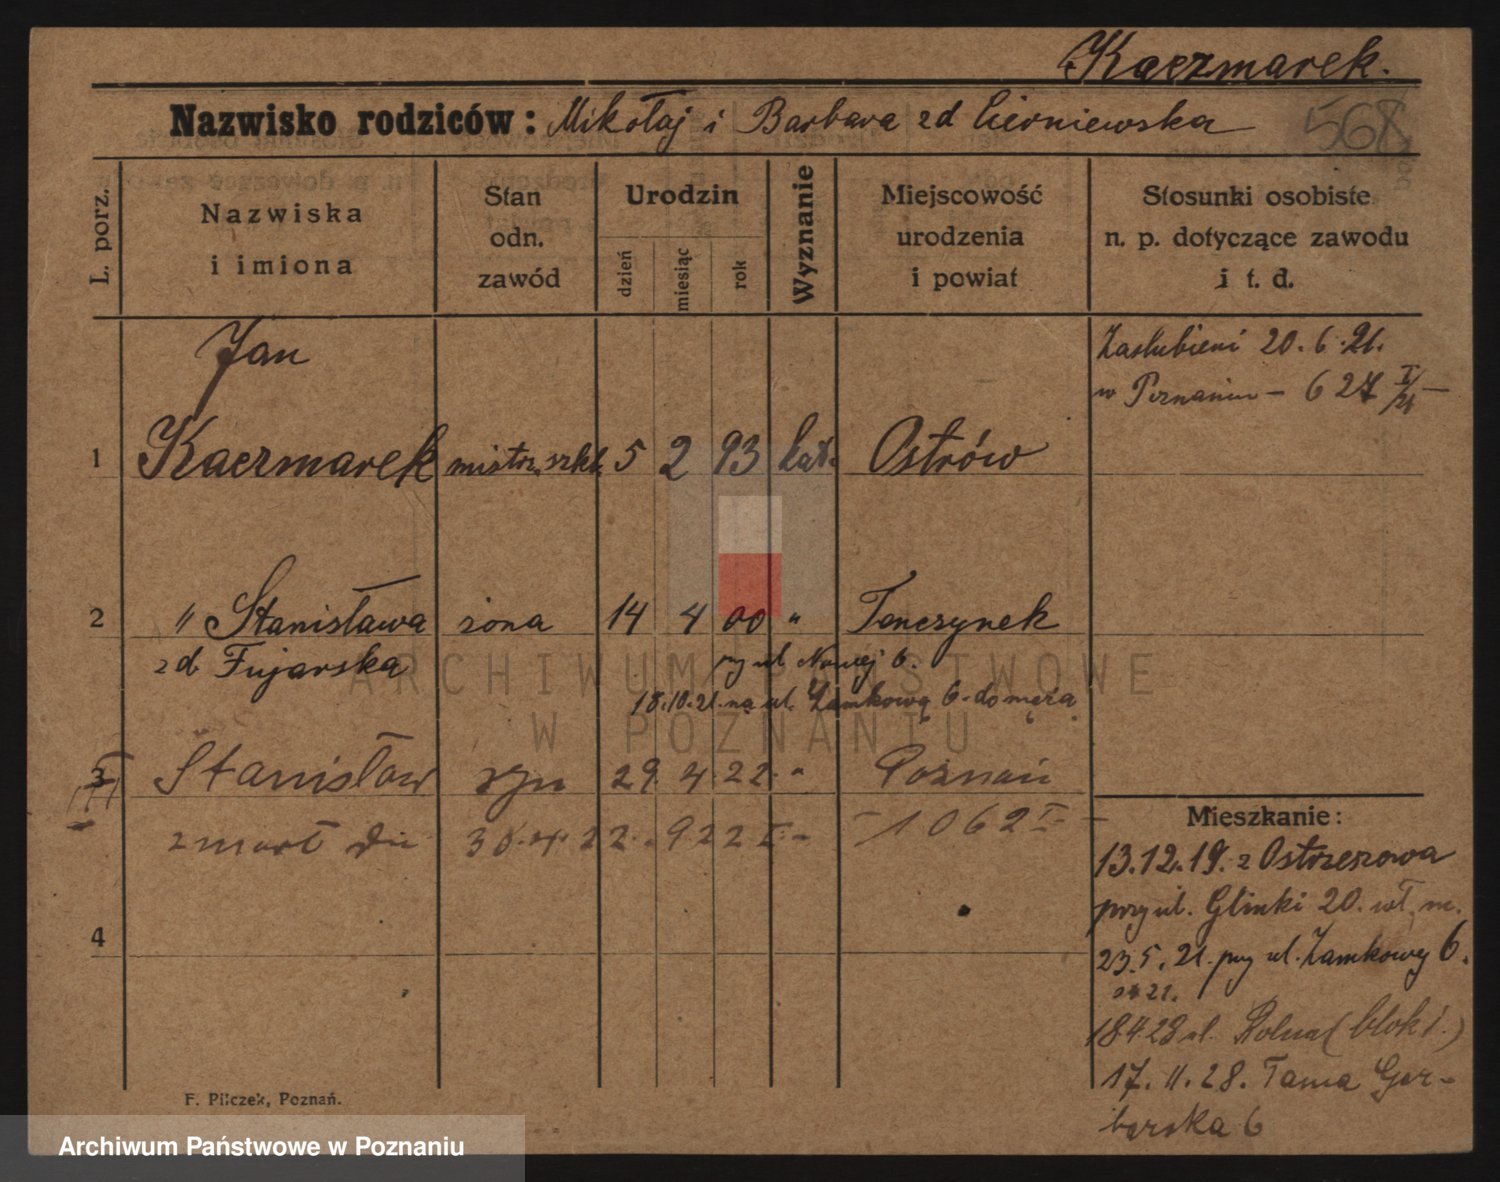 Kaczmarek.
Nazwisko rodziców: Mikołaj i Barbara zd Cierniewska 568
L. porz.
Nazwiska i imiona
Stan odn. zawód
Urodzin
dzień
miesiąc
rok
Wyznanie
Miejscowość urodzenia i powiat
Stosunki osobiste n. p. dotyczące zawodu i t. d.
Jan
Zaślubieni 20.6.21.
w Poznaniu – 627 I/21 –
1 Kaczmarek mistrz szkl. 5 2 93 kat. Ostrów
2 " Stanisława żona 14 4 00 " Tenczynek
zd Fujarska przy ul. Nowej 6.
18.10.21. na ul. Zamkową 6. do męża
3 Stanisław syn 29. 4. 22. " Poznań
zmarł dn. 30.4.22. 922 I. – – 1062 I. –
4
Mieszkanie:
13.12.19. z Ostrzeszowa
przy ul. Glinki 20. wł. m.
23.5.21. przy ul. Zamkowej 6.
21.
18 4 23 ul. Rolna (bloki.)
17.11.28. Tama Gar-
barska 6
F. Pilczek, Poznań.
ARCHIWUM PAŃSTWOWE
W POZNANIU
Archiwum Państwowe w Poznaniu